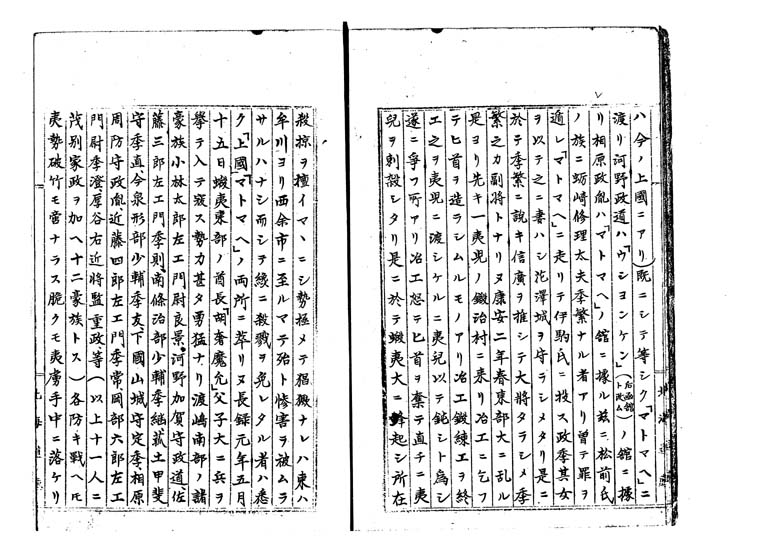 ハ今ノ上國ニアリ)既ニシテ等シク「マトマヘ」ニ
渡リ河野政道ハ「ウシヨンケン」(后函館ト改ム)ノ舘ニ據
リ相原政胤ハ「マトマヘ」ノ舘ニ據ル茲ニ松前氏
ノ族ニ蛎崎修理太夫季繁ナル者アリ曽テ罪ヲ
遁レ「マトマヘ」ニ走リテ伊駒氏ニ投ス政季其女
ヲ以テ之ニ妻ハシ花澤城ヲ守ラシメタリ是ニ
於テ季繁ニ説キ信廣ヲ推シテ大將タラシメ季
繁之カ副將トナリヌ康安二年春東部大ニ乱ル
是ヨリ先キ一夷児ノ鍛治村ニ来リ冶工ニ乞フ
テ匕首ヲ造ラシムルモノアリ冶工鍛練エヲ終
工之ヲ夷児ニ渡シケルニ夷児以テ鈍シト為シ
遂ニ爭フ所アリ冶工怒テ匕首ヲ奪テ直チニ夷
児ヲ刺殺シタリ是ニ於テ蝦夷大ニ蜂起シ所在
殺掠ヲ擅イマヽニシ勢極メテ猖獗ナレハ東ハ
牟川ヨリ西余市ニ至ルマテ殆ト惨害ヲ被ムラ
サルハナシ而シテ纔ニ殺戮ヲ免レタル者ハ悉
ク「上國」「マトマヘ」ノ両所ニ萃リヌ長録元年五月
十五日蝦夷東部ノ酋長「胡奢魔允」父子大ニ兵ヲ
擧ケ入テ寇ス勢力甚タ勇猛ナリ渡嶋南部ノ諸
豪族小林太郎左エ門尉良景、河野加賀守政道佐
藤三郎左エ門季則、南條治部少輔季継、蒋土甲斐
守季直、今泉形部少輔季友、下國山城守定季、相原
周防守政胤、近藤四郎左エ門季常岡部六郎左エ
門尉季澄、厚谷右近將監重政、等(以上十一人ニ
茂別家政ヲ加ヘ十二豪族トス)各防キ戦ヘトモ
夷勢破竹モ啻ナラス脆クモ夷虜手中ニ落ケリ